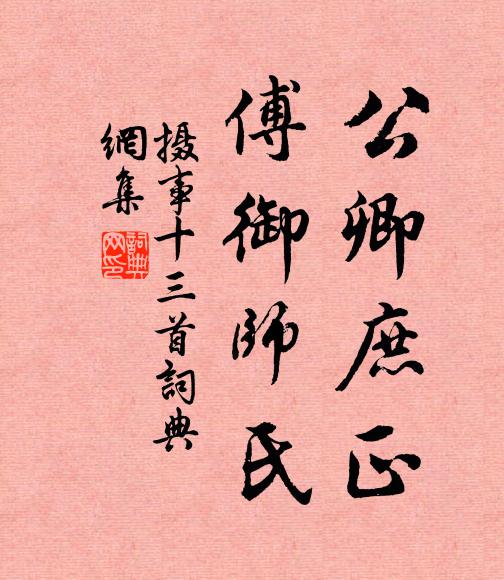 公卿庶正
傅御師氏
摄事十三首詞典
網集
詞典
网印